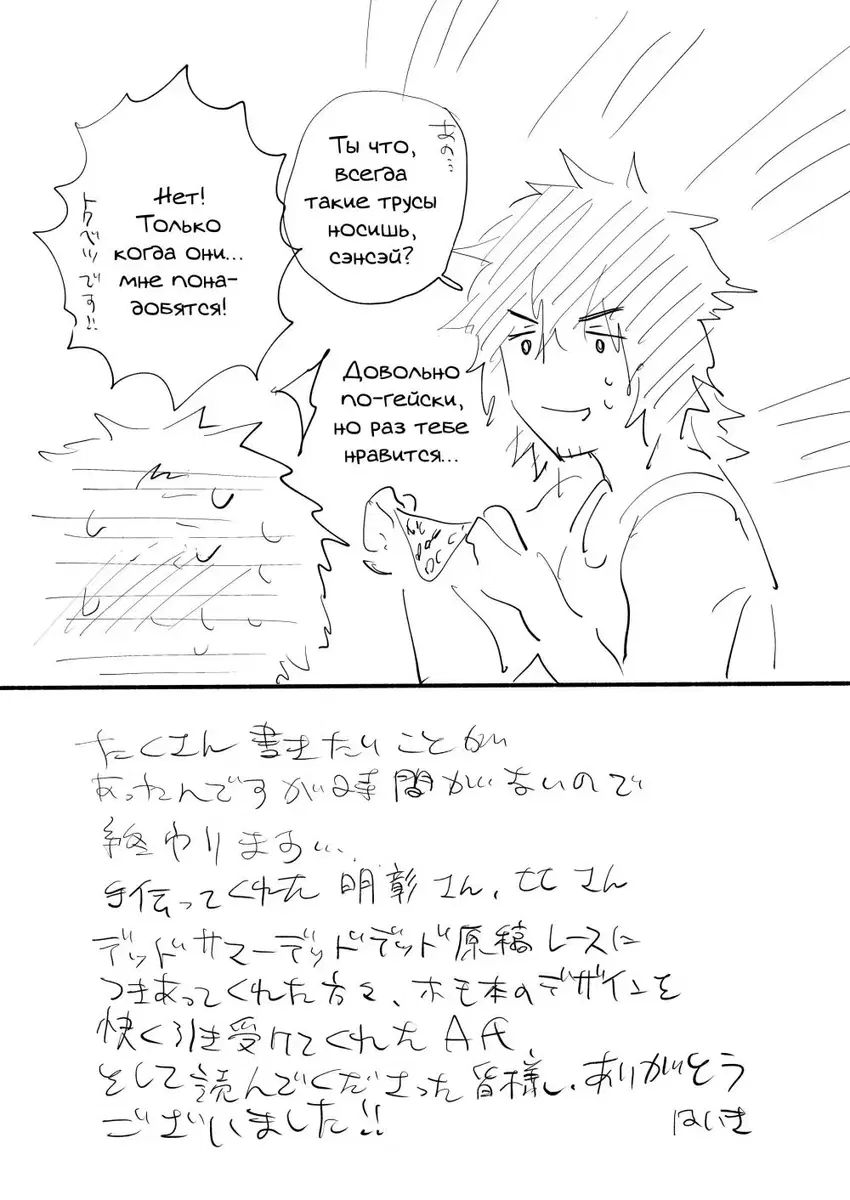 あの…
Ты что,
всегда
такие трусы
носишь,
сэнсэй?
Нет!
Только
когда они...
мне пона-
добятся!
トクベツです!!
Довольно
по-гейски,
но раз тебе
нравится...
たくさん書きたいことが
あったんですが時間がないので
終わります…
手伝ってくれた明彰さん、ヒヒさん
デッドサマーデッドデッド原稿レースに
つきあってくれた方々、ホモ本のデザインを
快く引き受けてくれたA氏
そして読んでくださった皆様、ありがとう
ございました!!
はいき